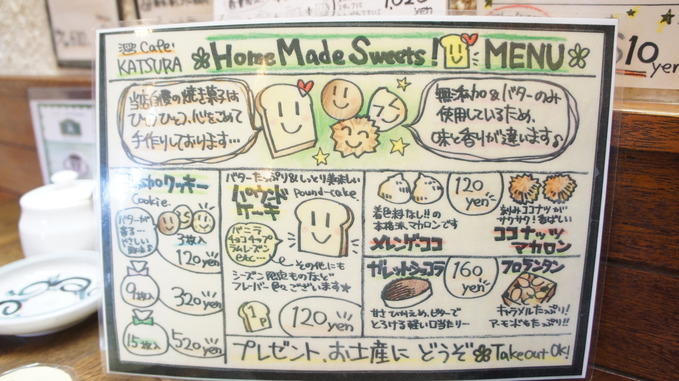 Cafe
KATSURA
Home Made Sweets! MENU
当店自慢の焼き菓子は
ひとつひとつ、心をこめて
手作りしております…
無添加&バターのみ
使用しているため、
味と香りが違います♪
クッキー
Cookie
バターが
香る…
やさしい
3枚入
120yen
9枚入
320yen
15枚入
520yen
バターたっぷり&しっとり美味しい
パウンド
ケーキ
Pound-cake
バニラ
チョコチップ
ラムレーズン
etc…
その他にも
シーズン限定ものなど
フレーバー色々ございます☆
1P
120yen
着色料なし!!の
本格派マカロンです
メレンゲ・ココ
120
yen
刻みココナッツが
サクサク!香ばしい
ココナッツ
マカロン
ガレットショコラ
甘さひかえめ、ビターで
とろける軽い口当たり…
160
yen
フロランタン
キャラメルたっぷり!
アーモンドもたっぷり!!
プレゼント、お土産に どうぞ Take out OK!
10
yen